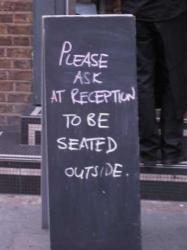 PLEASE
ASK
AT RECEPTION
TO BE
SEATED
OUTSIDE.